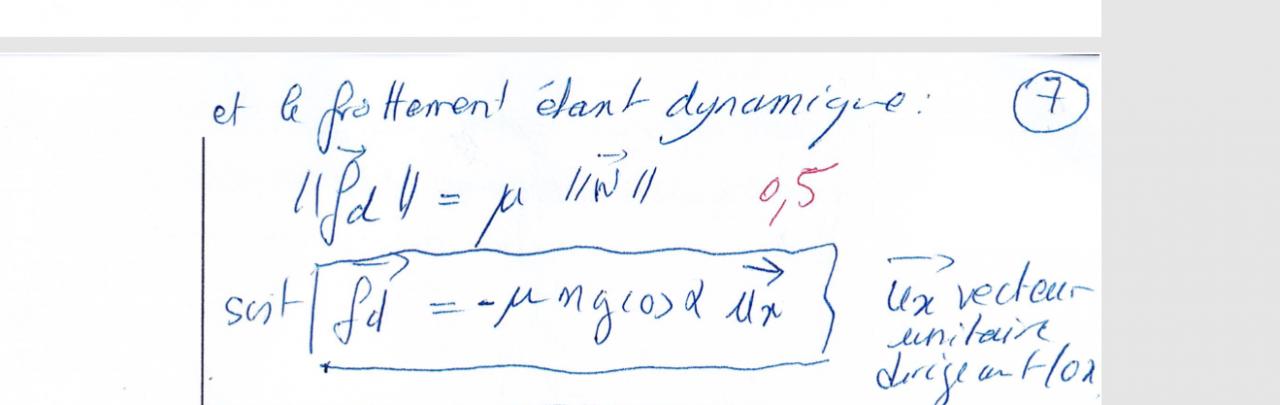 et le frottement étant dynamique : 7
||f⃗d|| = μ ||N⃗|| 0,5
soit f⃗d = -μ m g cos α u⃗x
u⃗x vecteur
unitaire
dirigeant (Ox